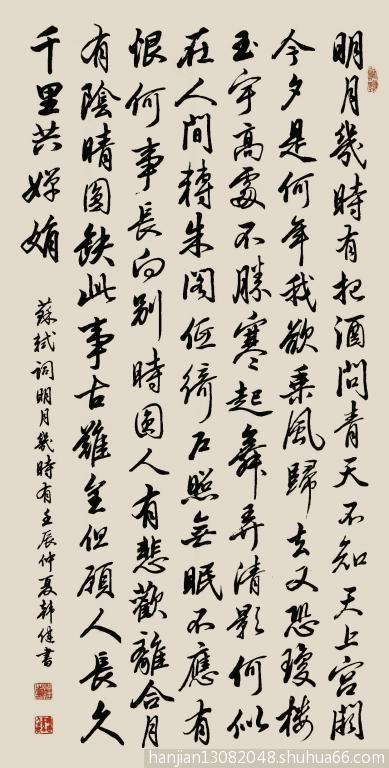 明月幾時有把酒問青天不知天上宮闕
今夕是何年我欲乘風歸去又恐瓊樓
玉宇高處不勝寒起舞弄清影何似
在人間轉朱閣低綺戶照無眠不應有
恨何事長向別時圓人有悲歡離合月
有陰晴圓缺此事古難全但願人長久
千里共嬋娟
蘇軾詞明月幾時有壬辰仲夏韓健書
hanjian13082048.shuhua66.com